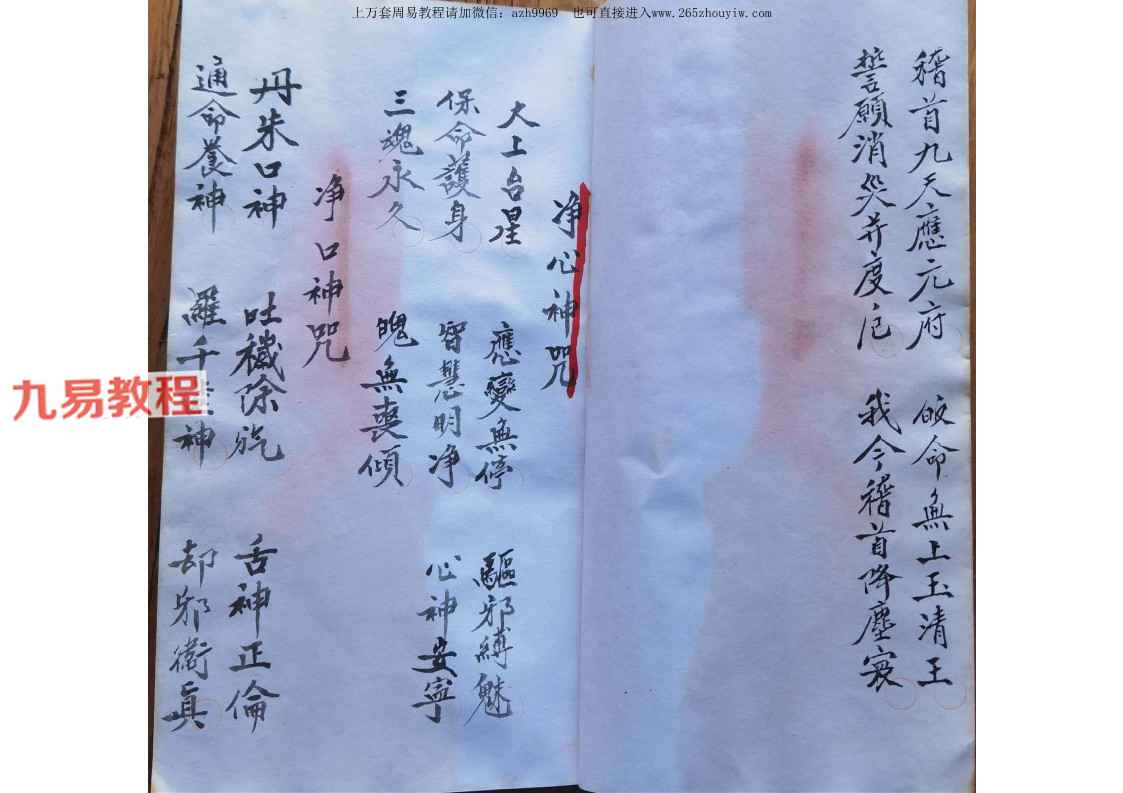 上万套周易教程请加微信：azh9969　也可直接进入www.265zhouyiw.com
稽首九天應元府　皈命無上玉清王
誓願消災并度厄　我今稽首降塵寰
净心神咒
大上台星　應變無停　驅邪縛魅
保命護身　智慧明净　心神安寧
三魂永久　魄無喪傾
净口神咒
丹朱口神　吐穢除氛　舌神正倫
通命養神　羅千神　却邪衛真
九易教程